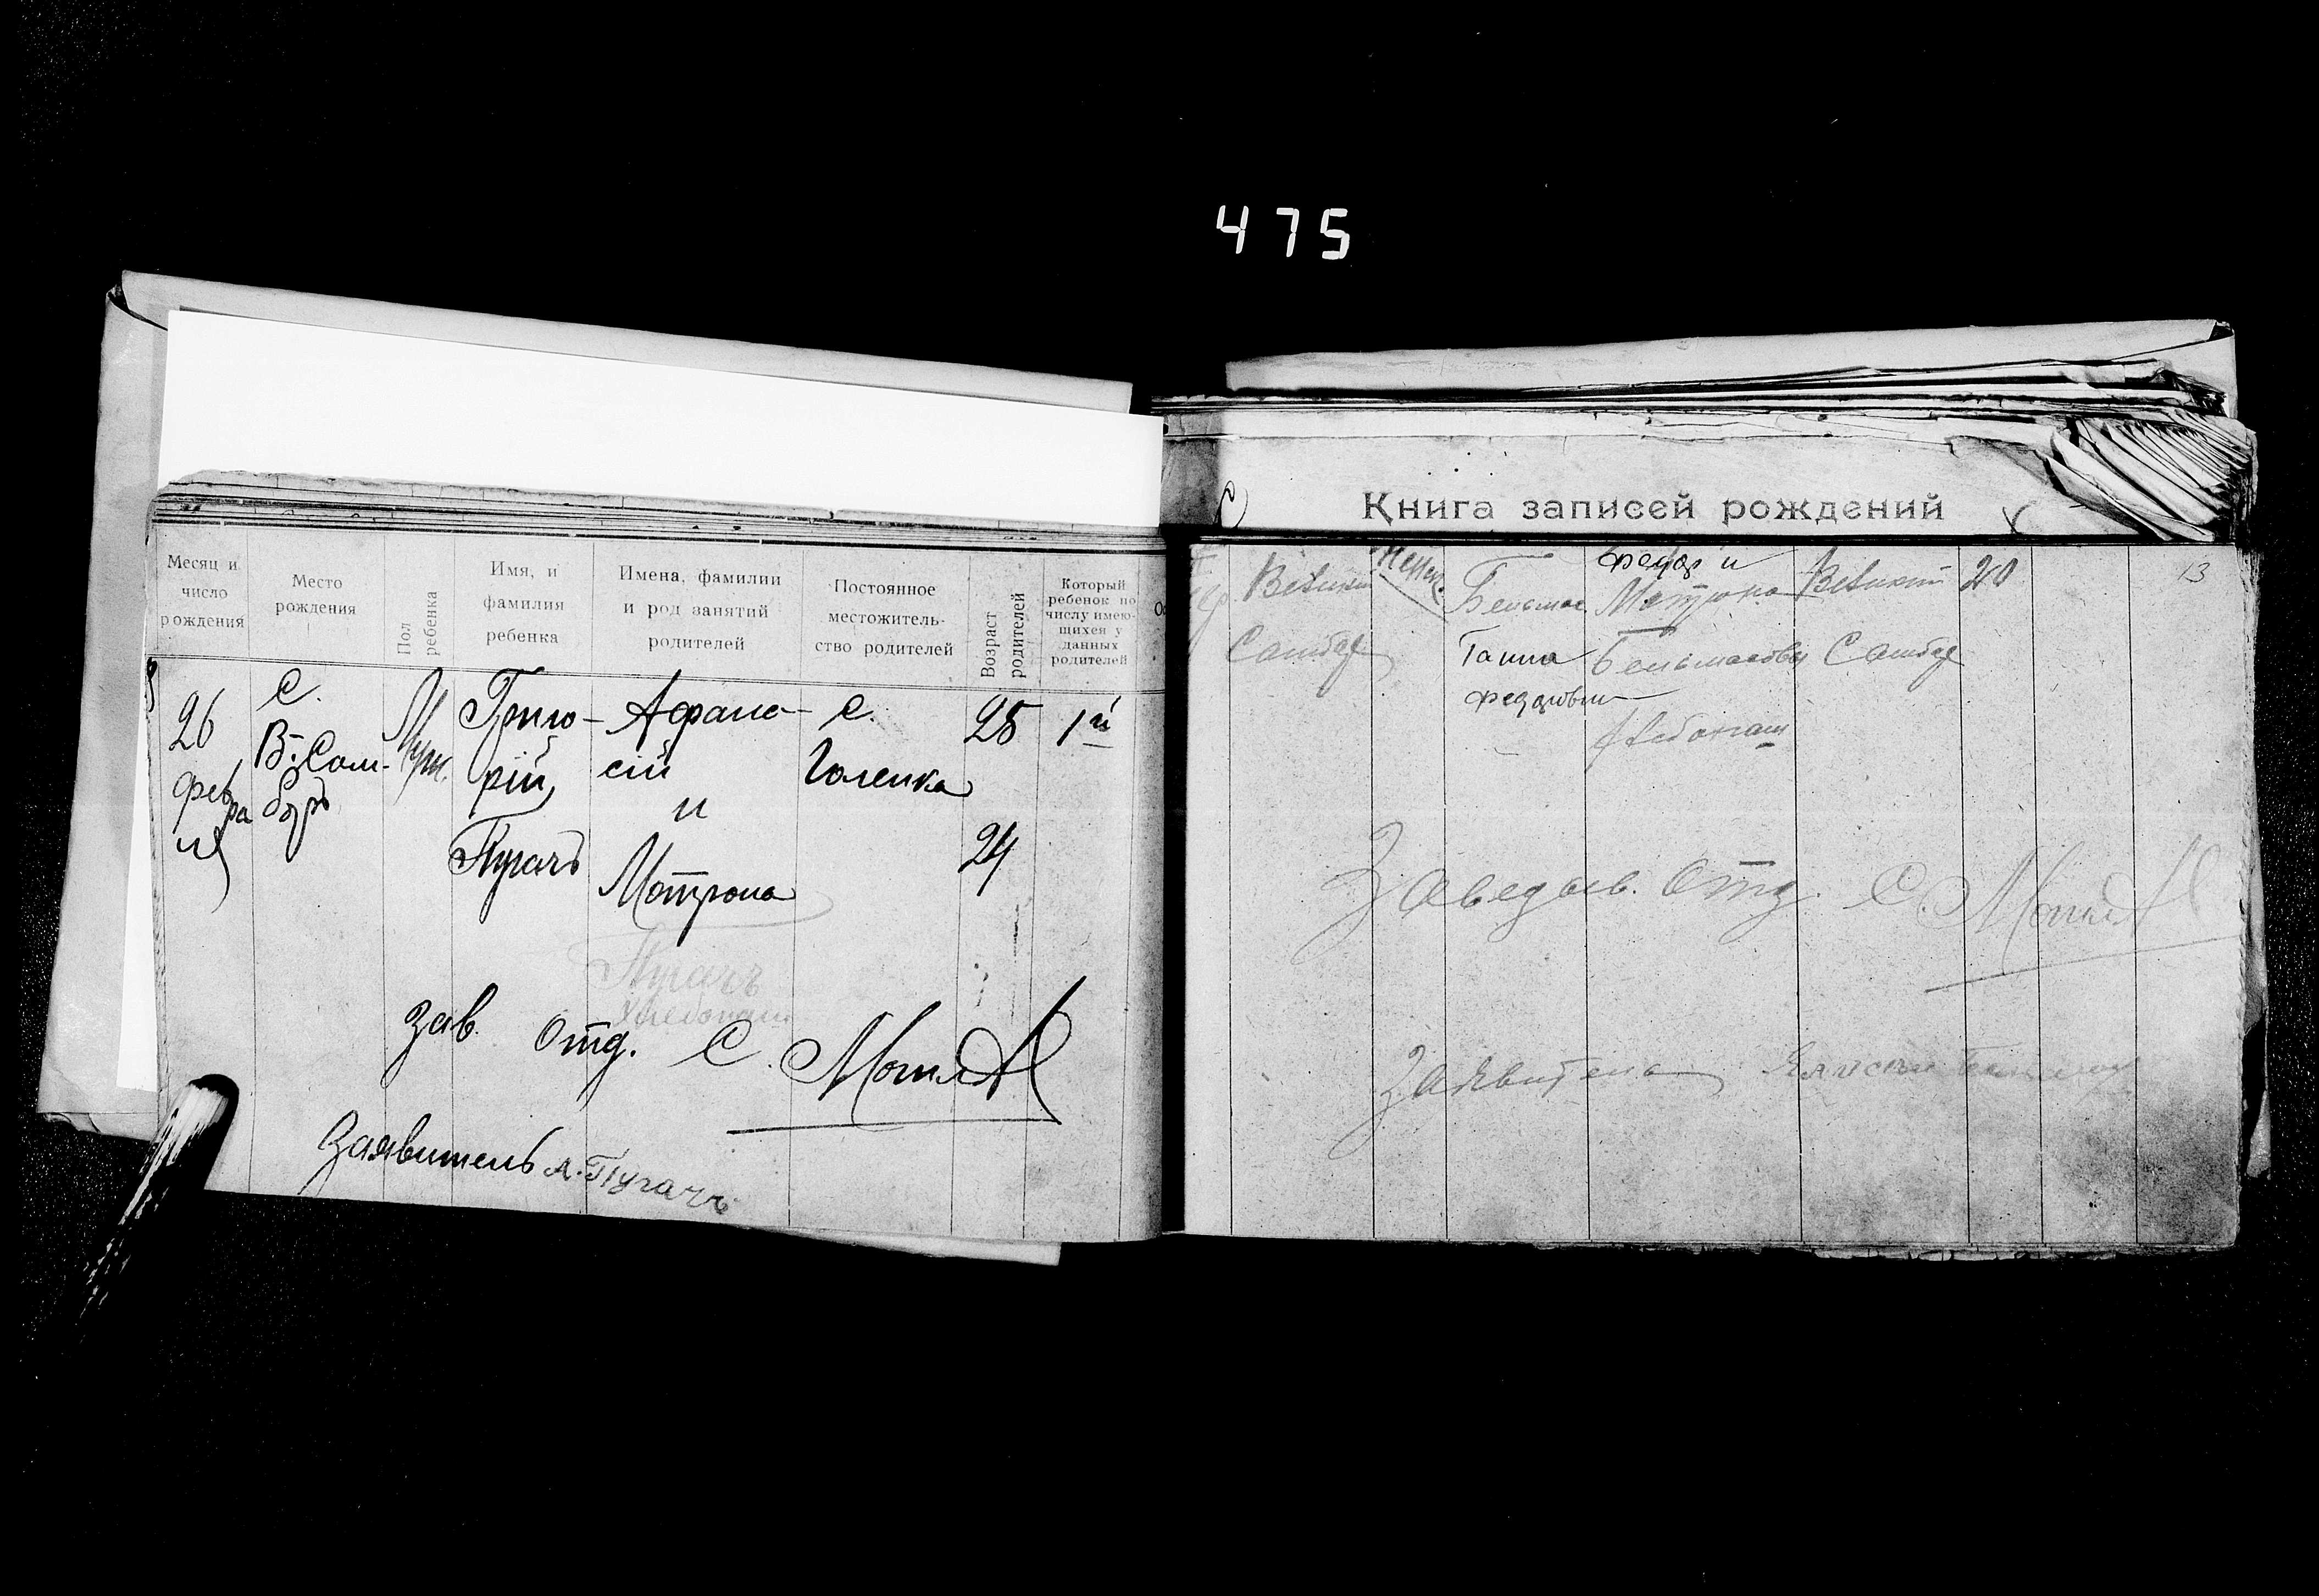 475
Месяц и число рождения
Место рождения
Пол ребенка
Имя, и фамилия ребенка
Имена, фамилии и род занятий родителей
Постоянное местожитель- ство родителей
Возраст родителей
Который ребенок по числу имею- щихся у данных родителей
26 февра ля
С. В-Сам- борь
Муж.
Григо- рій, Пугачъ
Афана- сій и Мотрона
Пугачъ
Хлебопаш.
с. Голенка
25
24
1й
Зав. Отд. С.
Заявитель А. Пугачъ
Книга записей рождений
Женск.
Ганна
Федор и Мотрона
Хлебопаш
20
13
Заведыв. Отд. С.
Заявитель